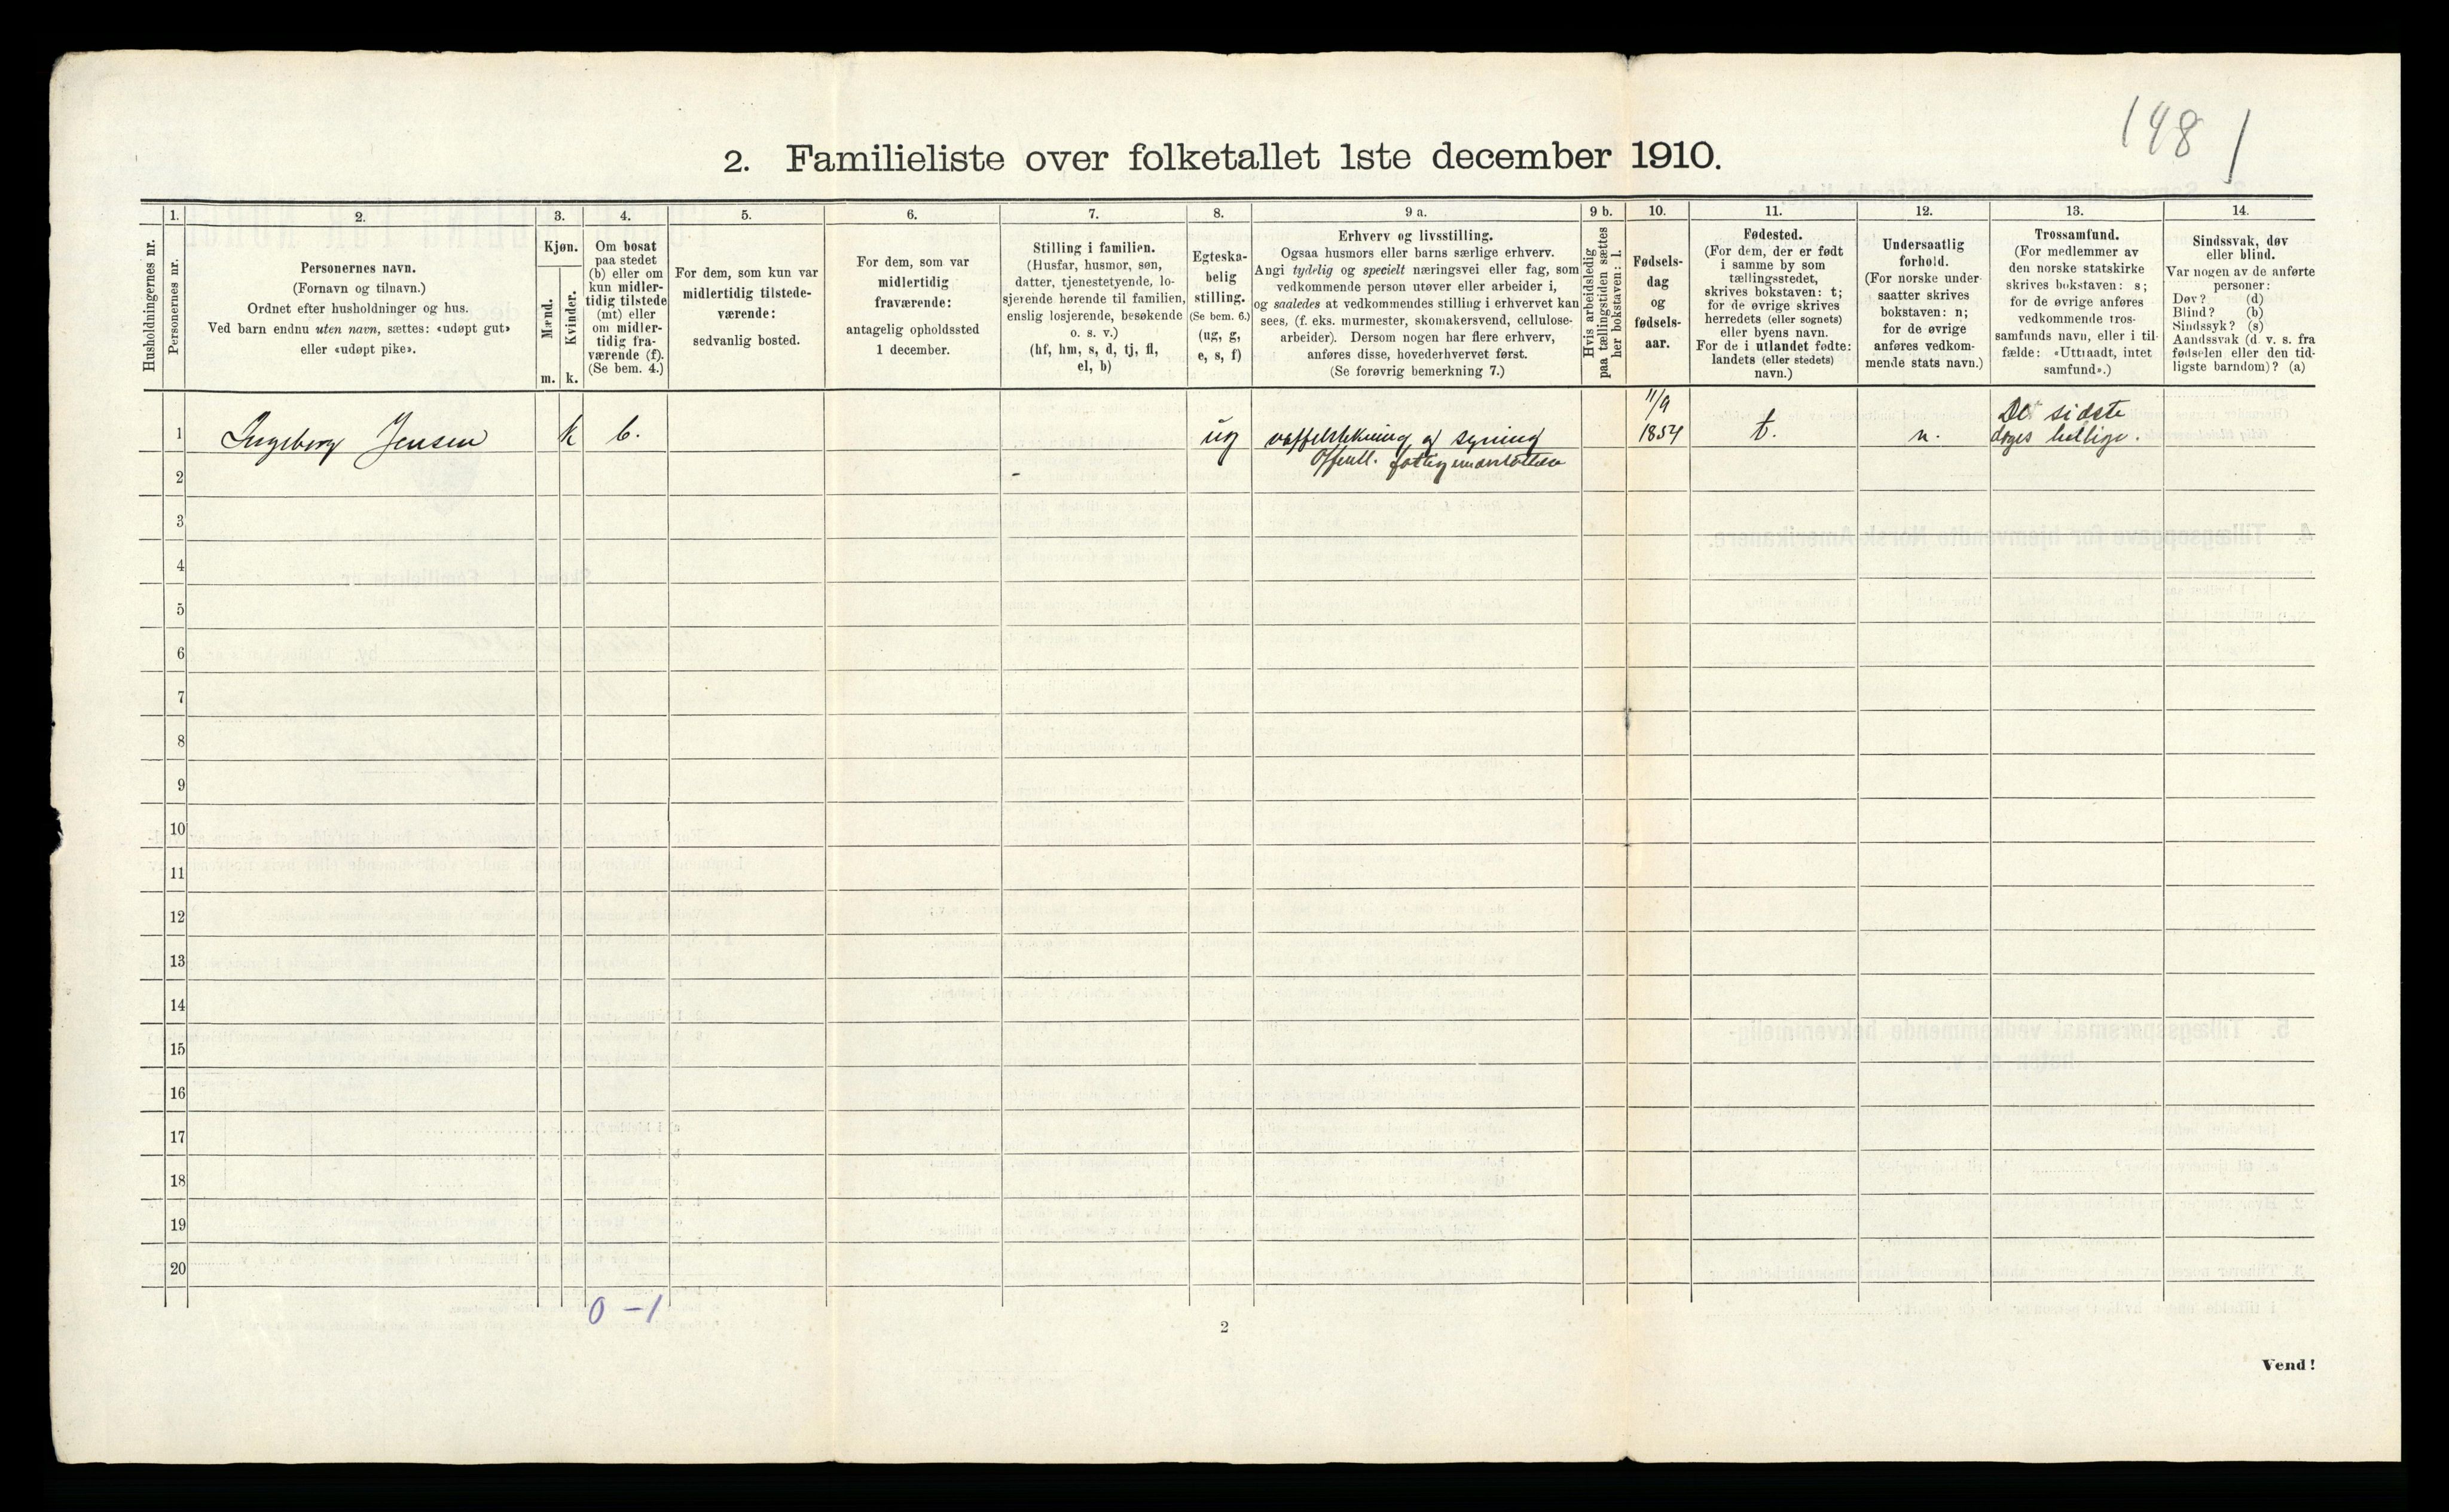 148 1
2. Familieliste over folketallet 1ste december 1910.
Husholdningernes nr.
1.
Personernes nr.
2.
Personernes navn.
(Fornavn og tilnavn.)
Ordnet efter husholdninger og hus.
Ved barn endnu uten navn, sættes: «udøpt gut»
eller «udøpt pike».
3.
Kjøn.
Mænd.
Kvinder.
m. k.
4.
Om bosat
paa stedet
(b) eller om
kun midler-
tidig tilstede
(mt) eller
om midler-
tidig fra-
værende (f).
(Se bem. 4.)
5.
For dem, som kun var
midlertidig tilstede-
værende:
sedvanlig bosted.
6.
For dem, som var
midlertidig
fraværende:
antagelig opholdssted
1 december.
7.
Stilling i familien.
(Husfar, husmor, søn,
datter, tjenestetyende, lo-
sjerende hørende til familien,
enslig losjerende, besøkende
o. s. v.)
(hf, hm, s, d, tj, fl,
el, b)
8.
Egteska-
belig
stilling.
(Se bem. 6.)
(ug, g,
e, s, f)
9 a.
Erhverv og livsstilling.
Ogsaa husmors eller barns særlige erhverv.
Angi tydelig og specielt næringsvei eller fag, som
vedkommende person utøver eller arbeider i,
og saaledes at vedkommendes stilling i erhvervet kan
sees, (f. eks. murmester, skomakersvend, cellulose-
arbeider). Dersom nogen har flere erhverv,
anføres disse, hovederhvervet først.
(Se forøvrig bemerkning 7.)
9 b.
Hvis arbeidsledig
paa tællingstiden sættes
her bokstaven: l.
10.
Fødsels-
dag
og
fødsels-
aar.
11.
Fødested.
(For dem, der er født
i samme by som
tællingsstedet,
skrives bokstaven: t;
for de øvrige skrives
herredets (eller sognets)
eller byens navn.
For de i utlandet fødte:
landets (eller stedets)
navn.)
12.
Undersaatlig
forhold.
(For norske under-
saatter skrives
bokstaven: n;
for de øvrige
anføres vedkom-
mende stats navn.)
13.
Trossamfund.
(For medlemmer av
den norske statskirke
skrives bokstaven: s;
for de øvrige anføres
vedkommende tros-
samfunds navn, eller i til-
fælde: «Uttraadt, intet
samfund».)
14.
Sindssvak, døv
eller blind.
Var nogen av de anførte
personer:
Døv? (d)
Blind? (b)
Sindssyk? (s)
Aandssvak (d. v. s. fra
fødselen eller den tid-
ligste barndom)? (a)
1 Ingeborg Jensen k b. ug vaffelstekning og syning 11/9 1854 t. n. Det sidste
dages hellige.
Offentl. fattigunderstøttelse
2
3
4
5
6
7
8
9
10
11
12
13
14
15
16
17
18
19
20
0 - 1
2
Vend!